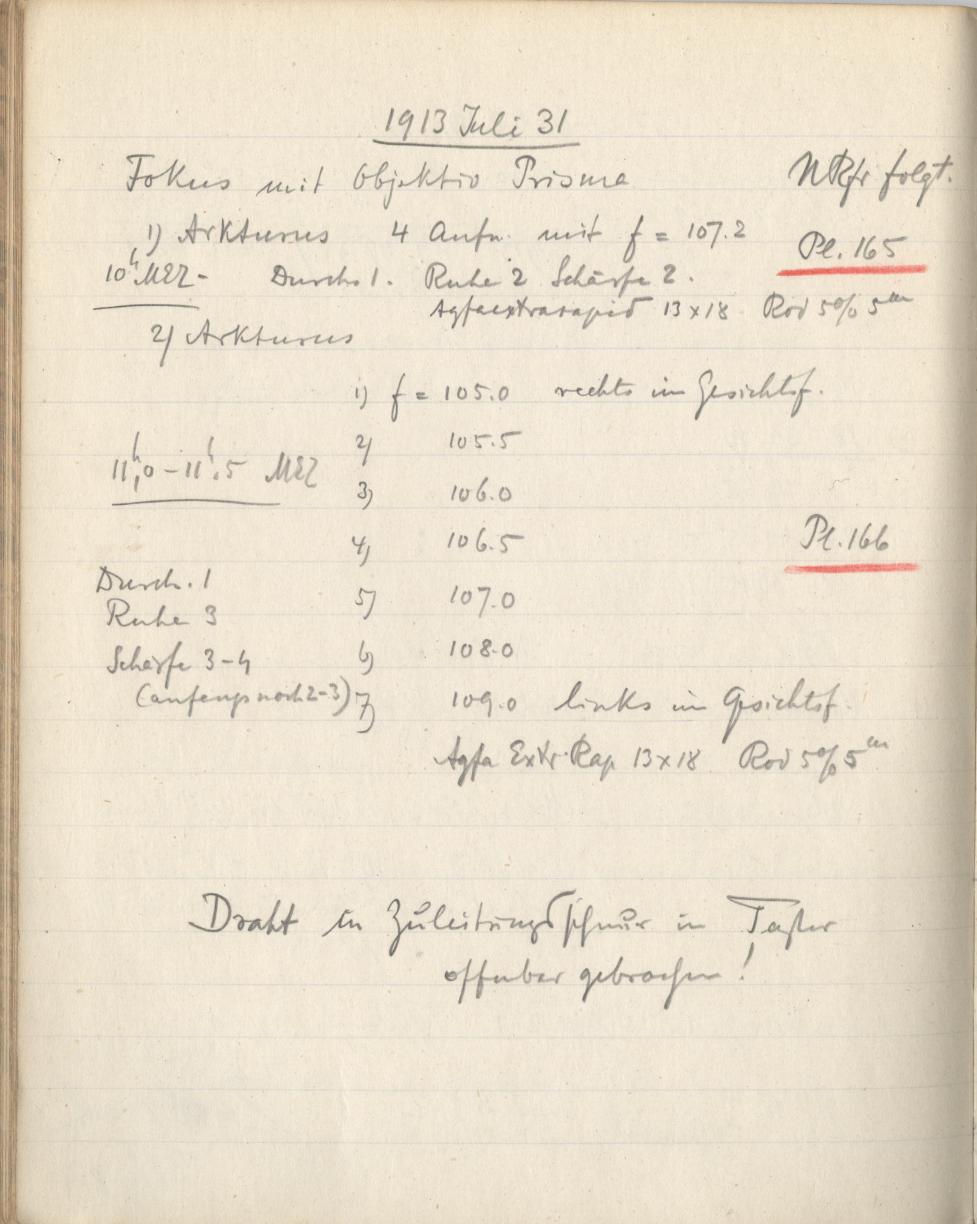 1913 Juli 31
Fokus mit Objektiv Prisma folgt.
1) Arkturus 4 Aufn. mit f = 107.2 Pl. 165
10h MEZ - Durchs 1. Ruhe 2 Schärfe 2.
Agfaextrarapid 13x18 Rod 5% 5m
2) Arkturus
1) f = 105.0 rechts im Gesichtsf.
2) 105.5
11h,0 - 11h.5 MEZ
3) 106.0
4) 106.5 Pl. 166
Durch. 1
5) 107.0
Ruhe 3
6) 108.0
Schärfe 3-4
(anfangs noch 2-3) 7) 109.0 links im Gesichtsf.
Agfa Extr. Rap 13x18 Rod 5% 5m
Draht in Zuleitungsschnur in Taster
offenbar gebrochen!